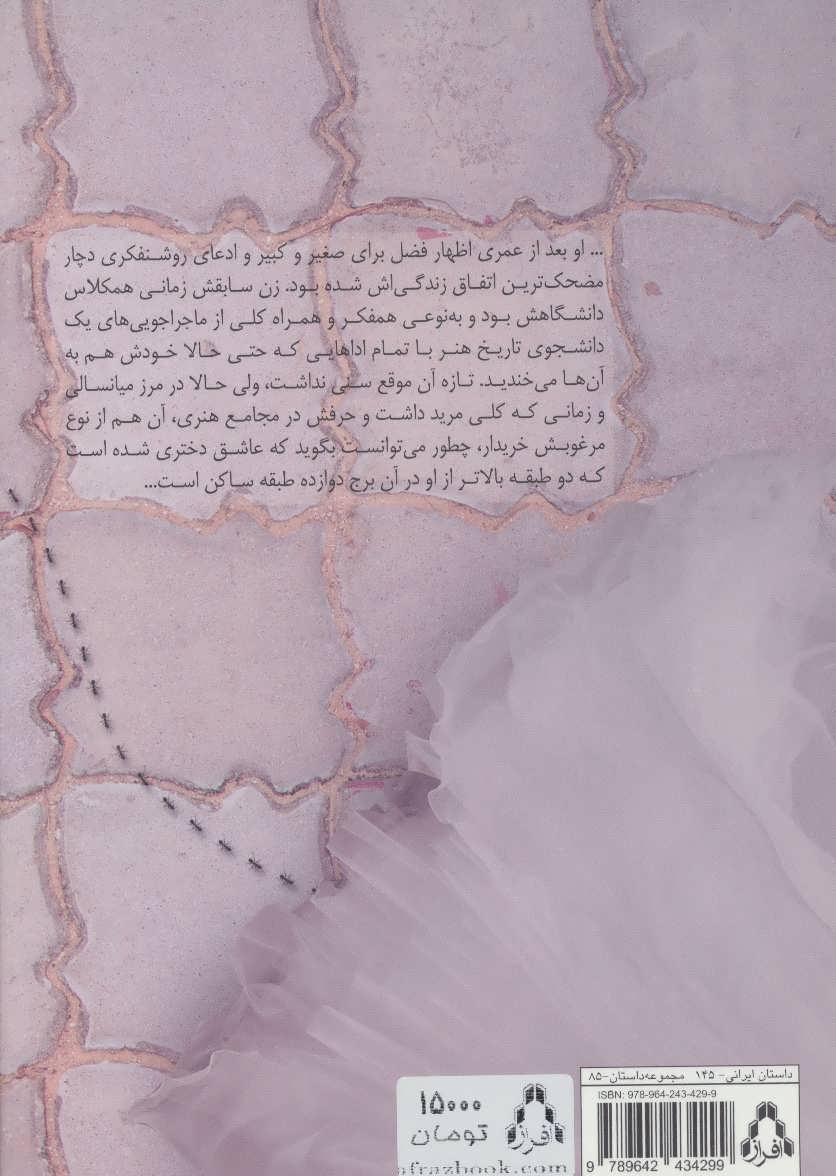 ... او بعد از عمری اظهار فضل برای صغیر و کبیر و ادعای روشنفکری دچار
مضحک‌ترین اتفاق زندگی‌اش شده بود. زن سابقش زمانی همکلاس
دانشگاهش بود و به‌نوعی همفکر و همراه کلی از ماجراجویی‌های یک
دانشجوی تاریخ هنر با تمام اداهایی که حتی حالا خودش هم به
آن‌ها می‌خندید. تازه آن موقع سنی نداشت، ولی حالا در مرز میانسالی
و زمانی که کلی مرید داشت و حرفش در مجامع هنری، آن هم از نوع
مرغوبش خریدار، چطور می‌توانست بگوید که عاشق دختری شده است
که دو طبقه بالاتر از او در آن برج دوازده طبقه ساکن است...
داستان ایرانی- ۱۴۵ مجموعه‌داستان-۸۵
ISBN: 978-964-243-429-9
افراز
9 789642 434299
۱۵۰۰۰
تومان
افراز
afrazbook.com